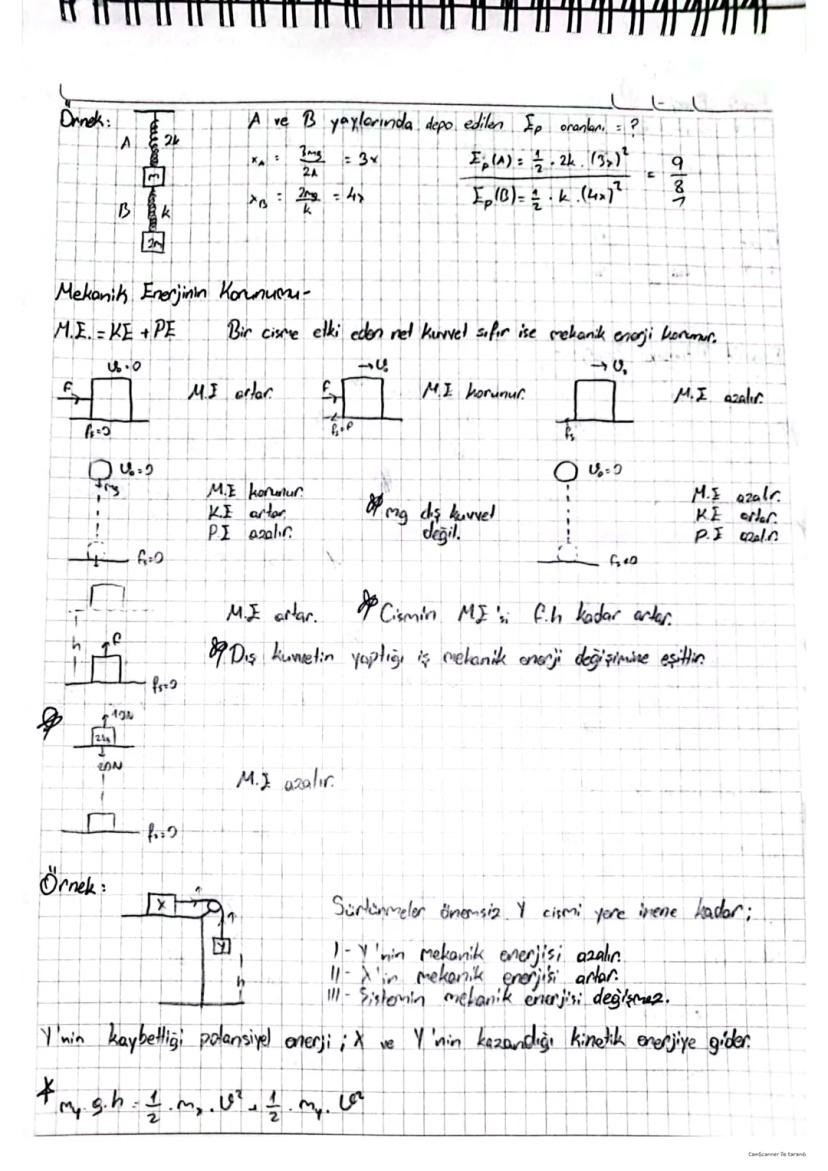 Örnek: A ve B yaylarında depo edilen Ep oranları = ?
A 2k
m
B k
2m
x_A = 3mg/2k = 3x
x_B = 2mg/k = 4x
Ep(A) = 1/2 . 2k . (3x)² / Ep(B) = 1/2 . k . (4x)² = 9/8
Mekanik Enerjinin Korunumu-
M.E. = KE + PE Bir cisme etki eden net kuvvet sıfır ise mekanik enerji korunur.
V₀=0 → V₀ → V₀
F M.E artar. F M.E korunur. M.E azalır.
fs=0 fs=F fs
V₀=0 V₀=0
mg
M.E korunur. M.E azalır.
K.E artar. KE artar.
P.E azalır. P.E azalır.
* mg dış kuvvet
değil.
fs=0 fs≠0
M.E artar. * Cismin ME'si F.h kadar artar.
h F
* Dış kuvvetin yaptığı iş mekanik enerji değişimine eşittir.
fs=0
10N
20N
M.E azalır.
fs=0
Örnek:
X
Y
h
Sürtünmeler önemsiz. Y cismi yere inene kadar;
I- Y'nin mekanik enerjisi azalır.
II- X'in mekanik enerjisi artar.
III- Sistemin mekanik enerjisi değişmez.
Y'nin kaybettiği potansiyel enerji ; X ve Y'nin kazandığı kinetik enerjiye gider.
* m_y . g . h = 1/2 . m_x . V² + 1/2 . m_y . V²
CamScanner ile tarandı